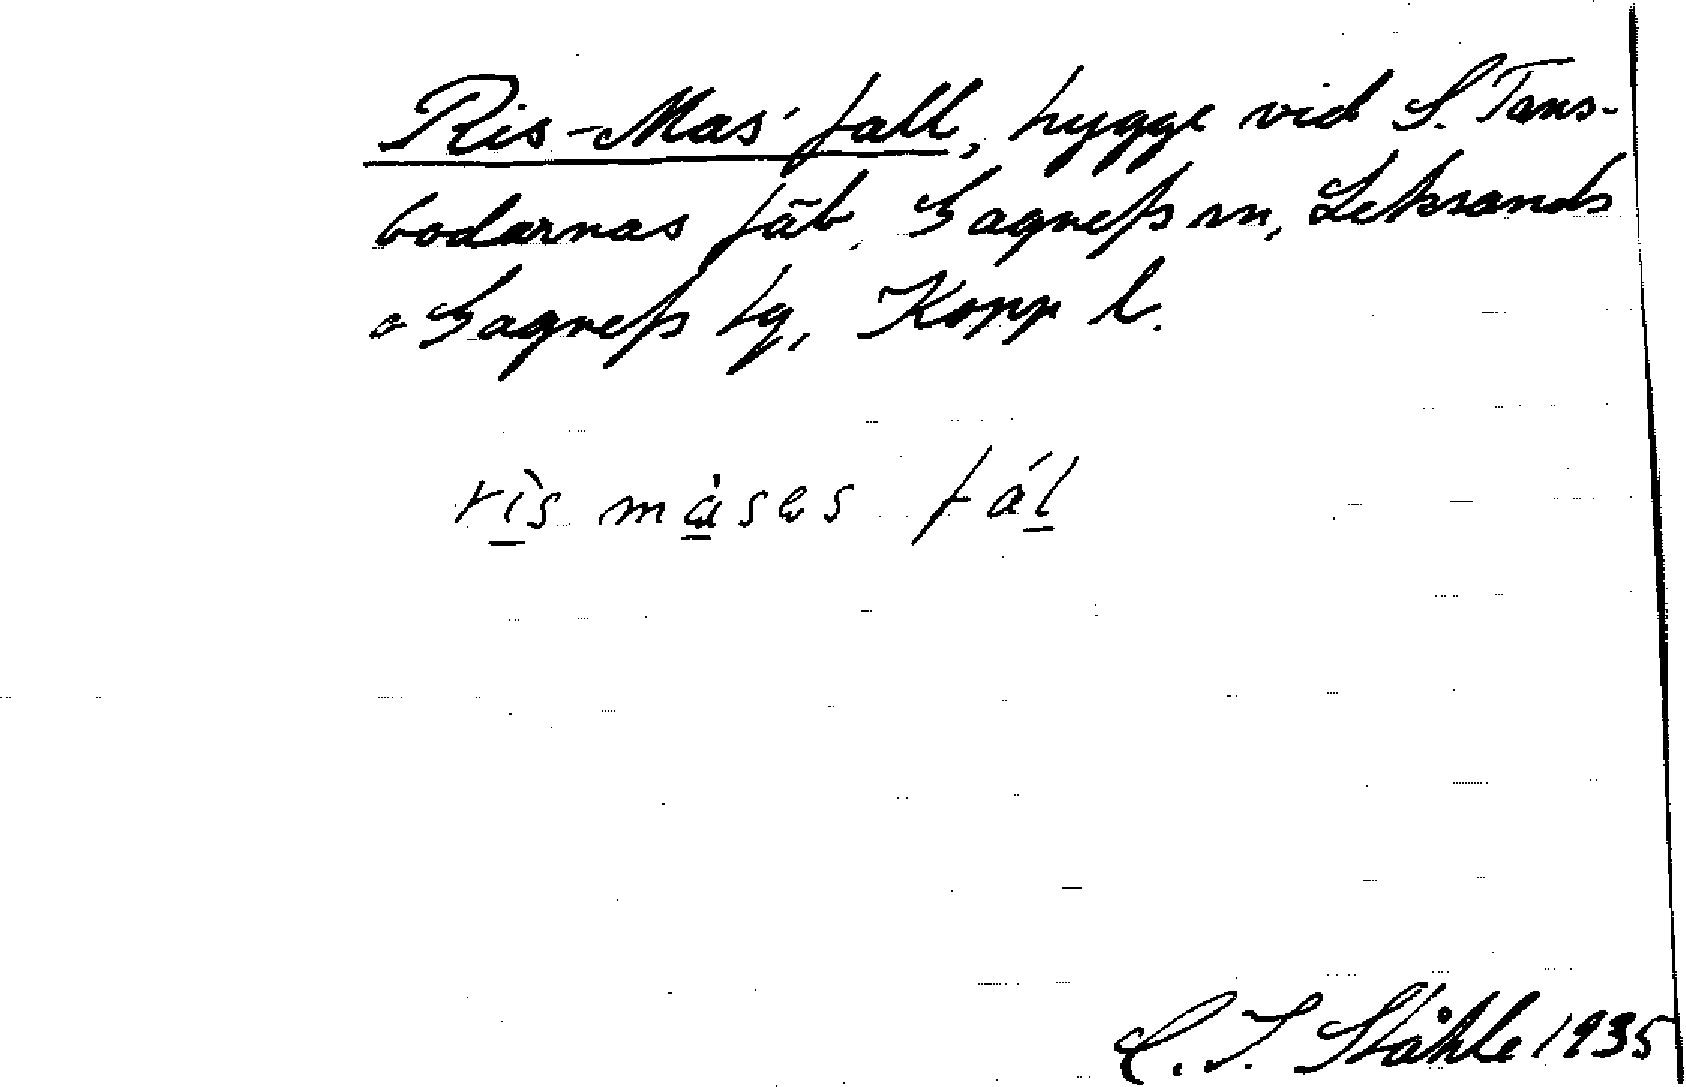 Ris-Mas' fall, hygge vid S. Tans-
bodarnas fäb. Gagnefs sn, Leksands
o Gagnefs tg, Kopp l.
rìs màses fál
C. I. Ståhle 1935